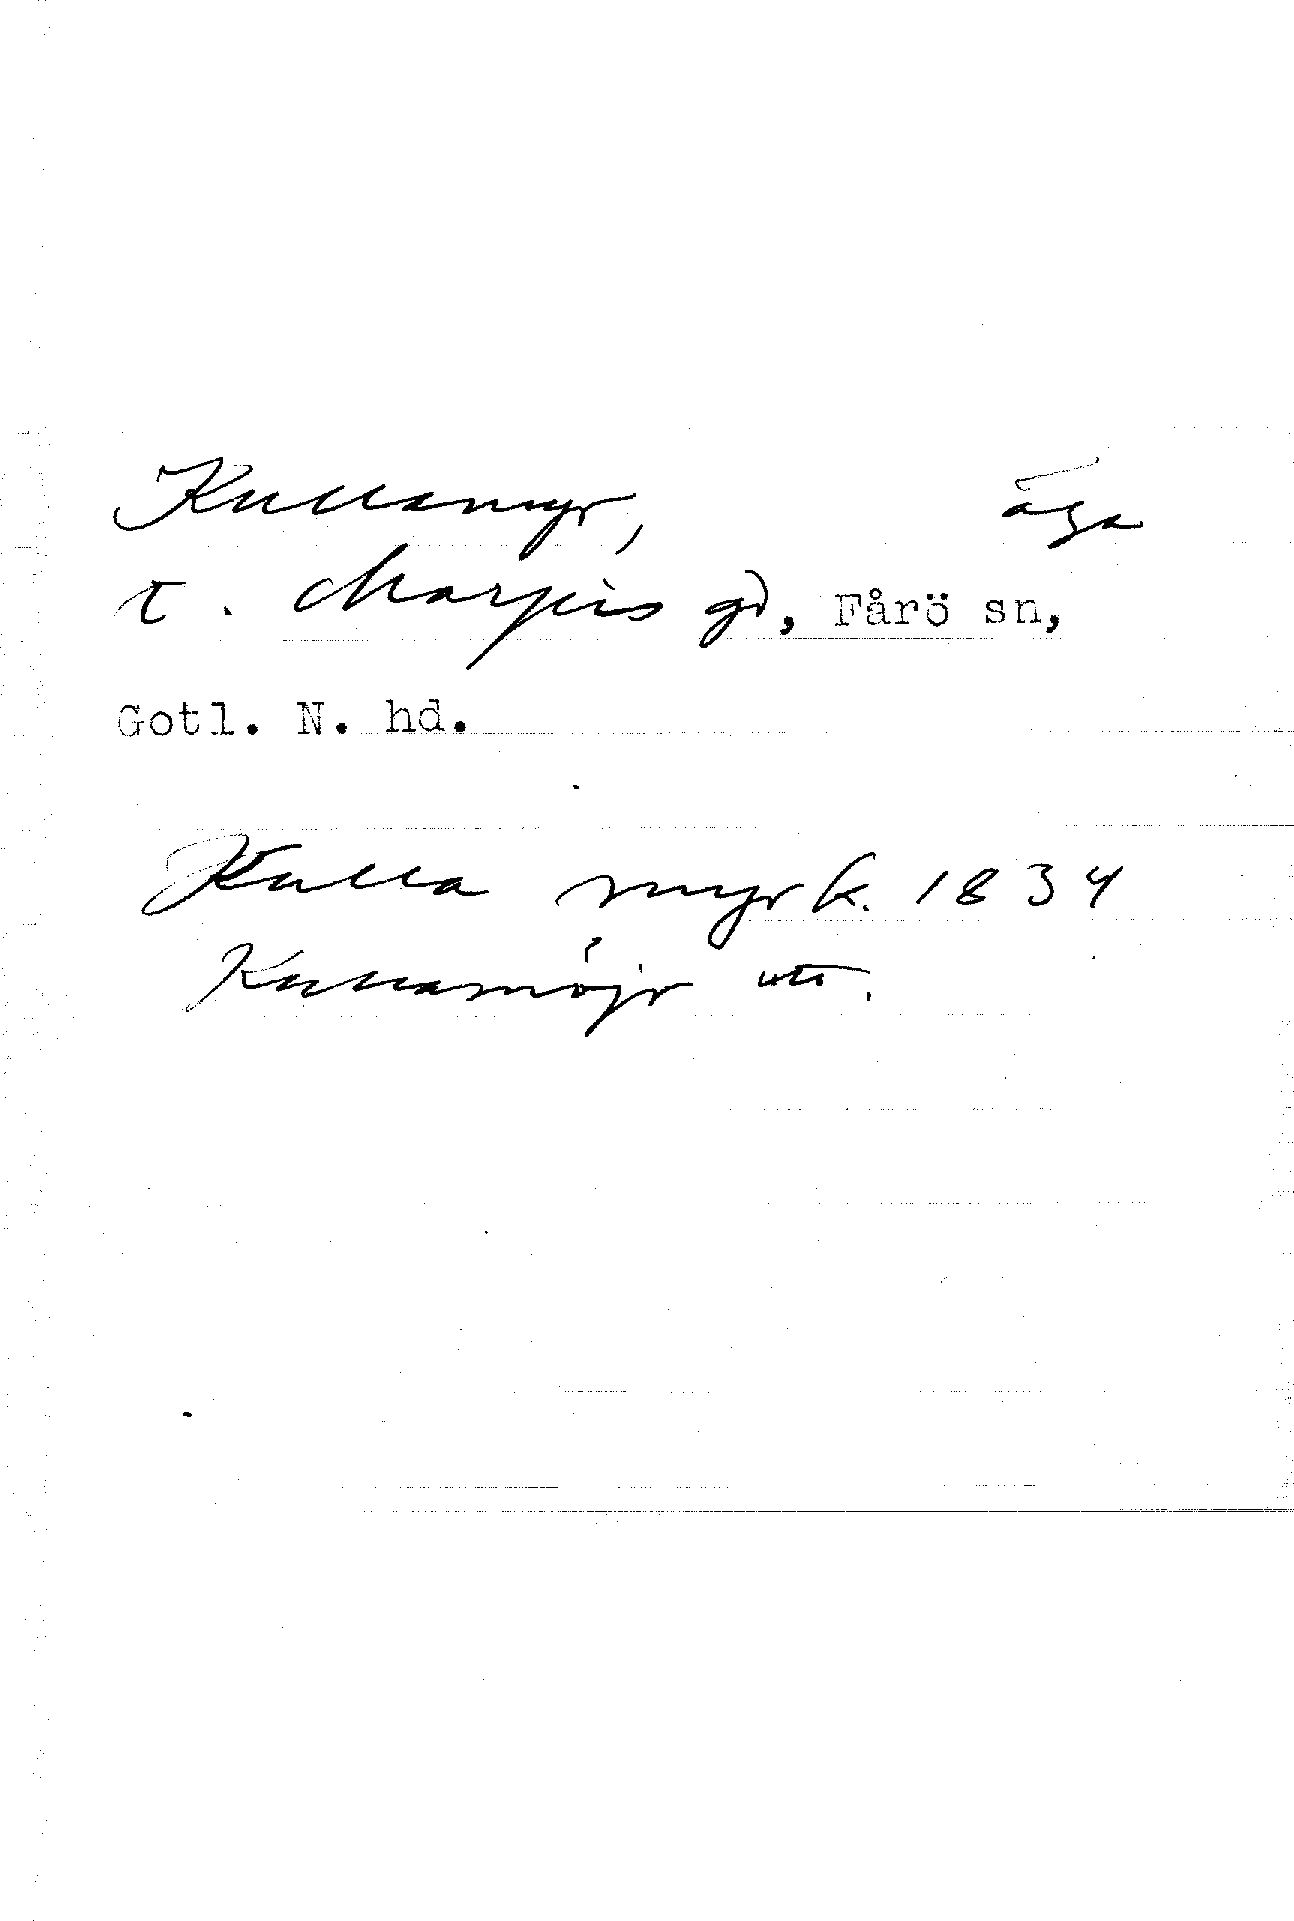 Kullamyr, äga
t. Marpes gd, Fårö sn,
Gotl. N. hd.
Kulla myr k. 1834
Kullamöjr utt.